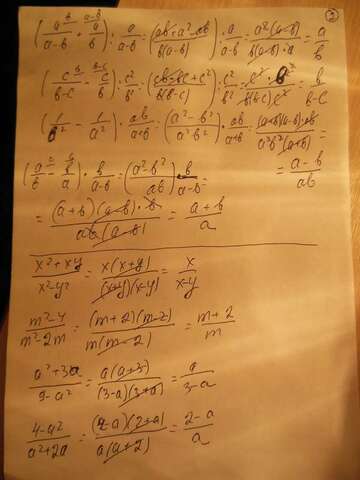 ②
(a^b/(a-b) + a^(a-b)/b) : a/(a-b) = (ab + a² - ab)/(b(a-b)) : a/(a-b) = a²(a-b)/(b(a-b)·a) = a/b
(c^b/(b-c) - c^(b-c)/b) : c²/b² = (cb - bc + c²)/(b(b-c)) : c²/b² = c²·b²/(b(b-c)c²) = b/(b-c)
(1/b² - 1/a²) · ab/(a+b) = (a²-b²)/(a²b²) · ab/(a+b) = (a+b)(a-b)·ab/(a²b²(a+b)) =
(a/b - b/a) · b/(a-b) = (a²-b²)/(ab) · b/(a-b) =
= (a-b)/(ab)
= (a+b)(a-b)·b/(ab(a-b)) = (a+b)/a
(x²+xy)/(x²-y²) = x(x+y)/((x+y)(x-y)) = x/(x-y)
(m²-4)/(m²-2m) = (m+2)(m-2)/(m(m-2)) = (m+2)/m
(a²+3a)/(9-a²) = a(a+3)/((3-a)(3+a)) = a/(3-a)
(4-a²)/(a²+2a) = (2-a)(2+a)/(a(a+2)) = (2-a)/a